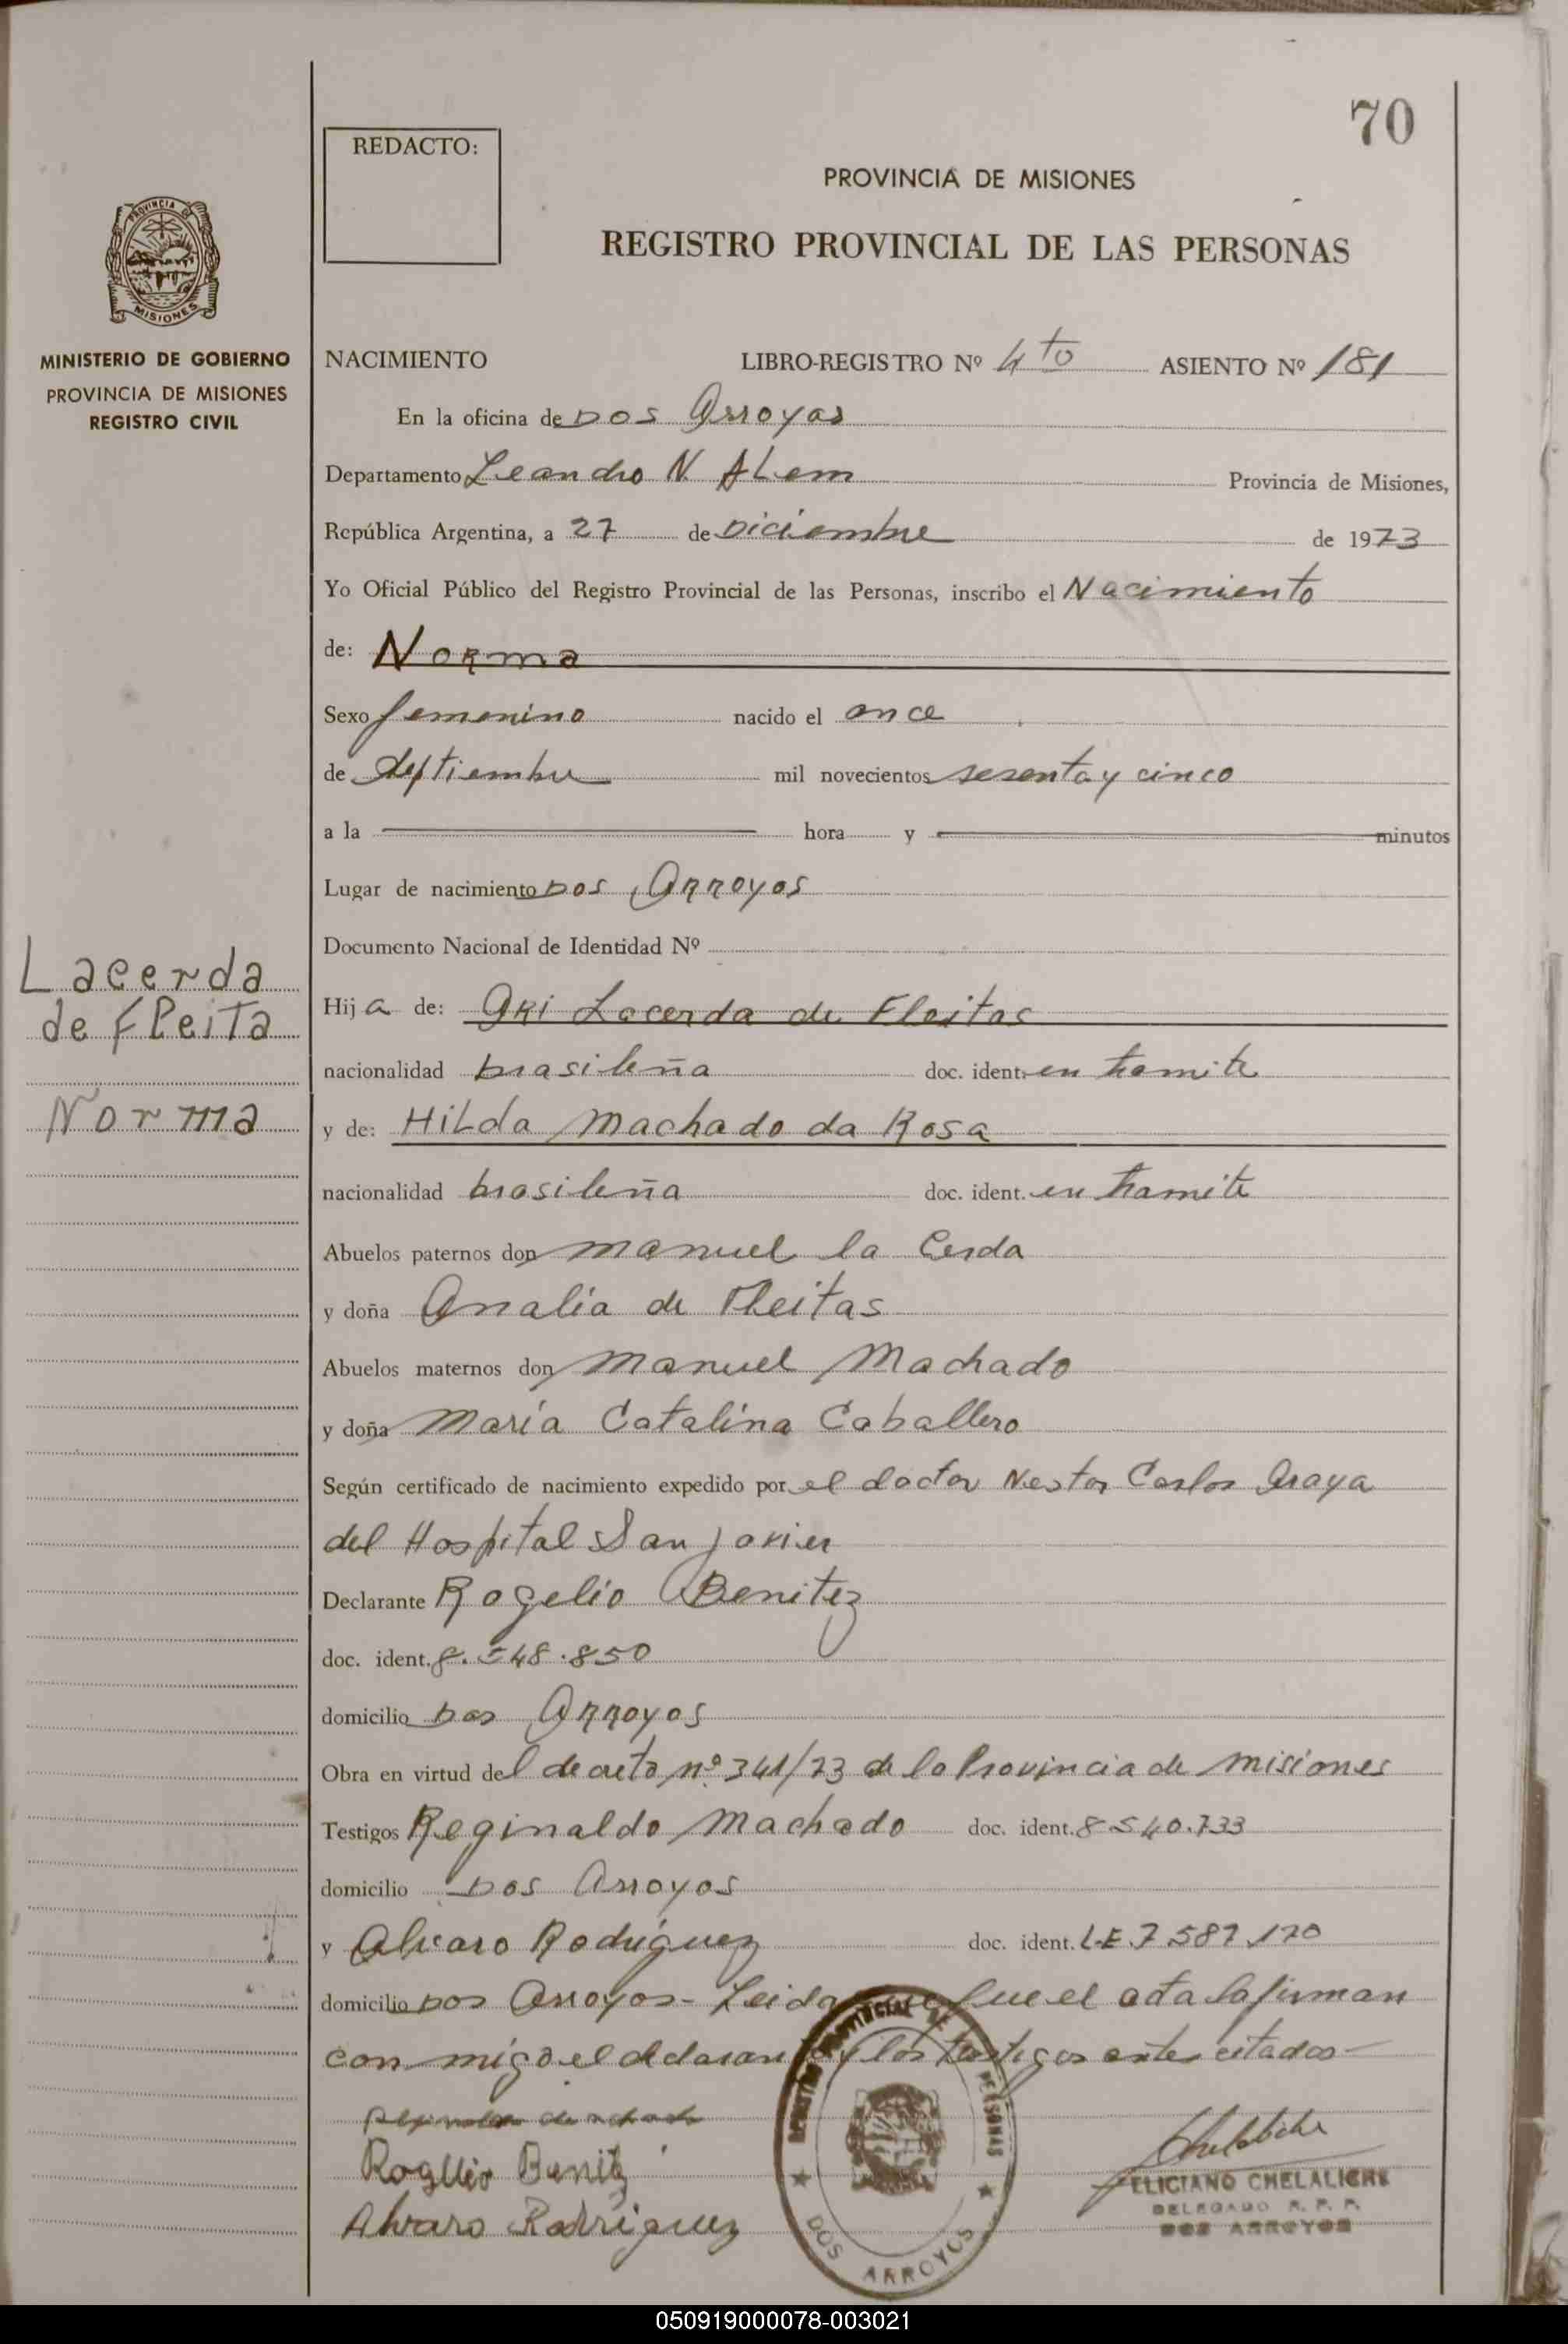 70
REDACTO:
PROVINCIA DE MISIONES
REGISTRO PROVINCIAL DE LAS PERSONAS
PROVINCIA DE
MISIONES
MINISTERIO DE GOBIERNO
PROVINCIA DE MISIONES
REGISTRO CIVIL
NACIMIENTO LIBRO-REGISTRO Nº 4to ASIENTO Nº 181
En la oficina de Dos Arroyos
Departamento Leandro N. ALem Provincia de Misiones,
República Argentina, a 27 de Diciembre de 1973
Yo Oficial Público del Registro Provincial de las Personas, inscribo el Nacimiento
de: Norma
Sexo femenino nacido el once
de septiembre mil novecientos sesenta y cinco
a la hora y minutos
Lugar de nacimiento Dos Arroyos
Documento Nacional de Identidad Nº
Lacerda
de fleita
Norma
Hija de: Ari Lacerda de Fleitas
nacionalidad brasileña doc. ident. en tramite
y de: HiLda Machado da Rosa
nacionalidad brasileña doc. ident. en tramite
Abuelos paternos don manuel la Cerda
y doña Analia de Fleitas
Abuelos maternos don manuel Machado
y doña María Catalina Caballero
Según certificado de nacimiento expedido por el doctor Nestor Carlos Araya
del Hospital San Javier
Declarante Rogelio Benitez
doc. ident. 8.548.850
domicilio Dos Arroyos
Obra en virtud del decreto nº 341/73 de la Provincia de misiones
Testigos Reginaldo Machado doc. ident. 8540.733
domicilio Dos Arroyos
y Alvaro Rodriguez doc. ident. L.E.7.587.170
domicilio Dos Arroyos - Leida que fue el acta la firman
con migo el declarante y los testigos antes citados -
Rogelio Benitz
Alvaro Rodriguez
REGISTRO PROVINCIAL DE PERSONAS
DOS ARROYOS
FELICIANO CHELALICHE
DELEGADO R. P. P.
DOS ARROYOS
050919000078-003021